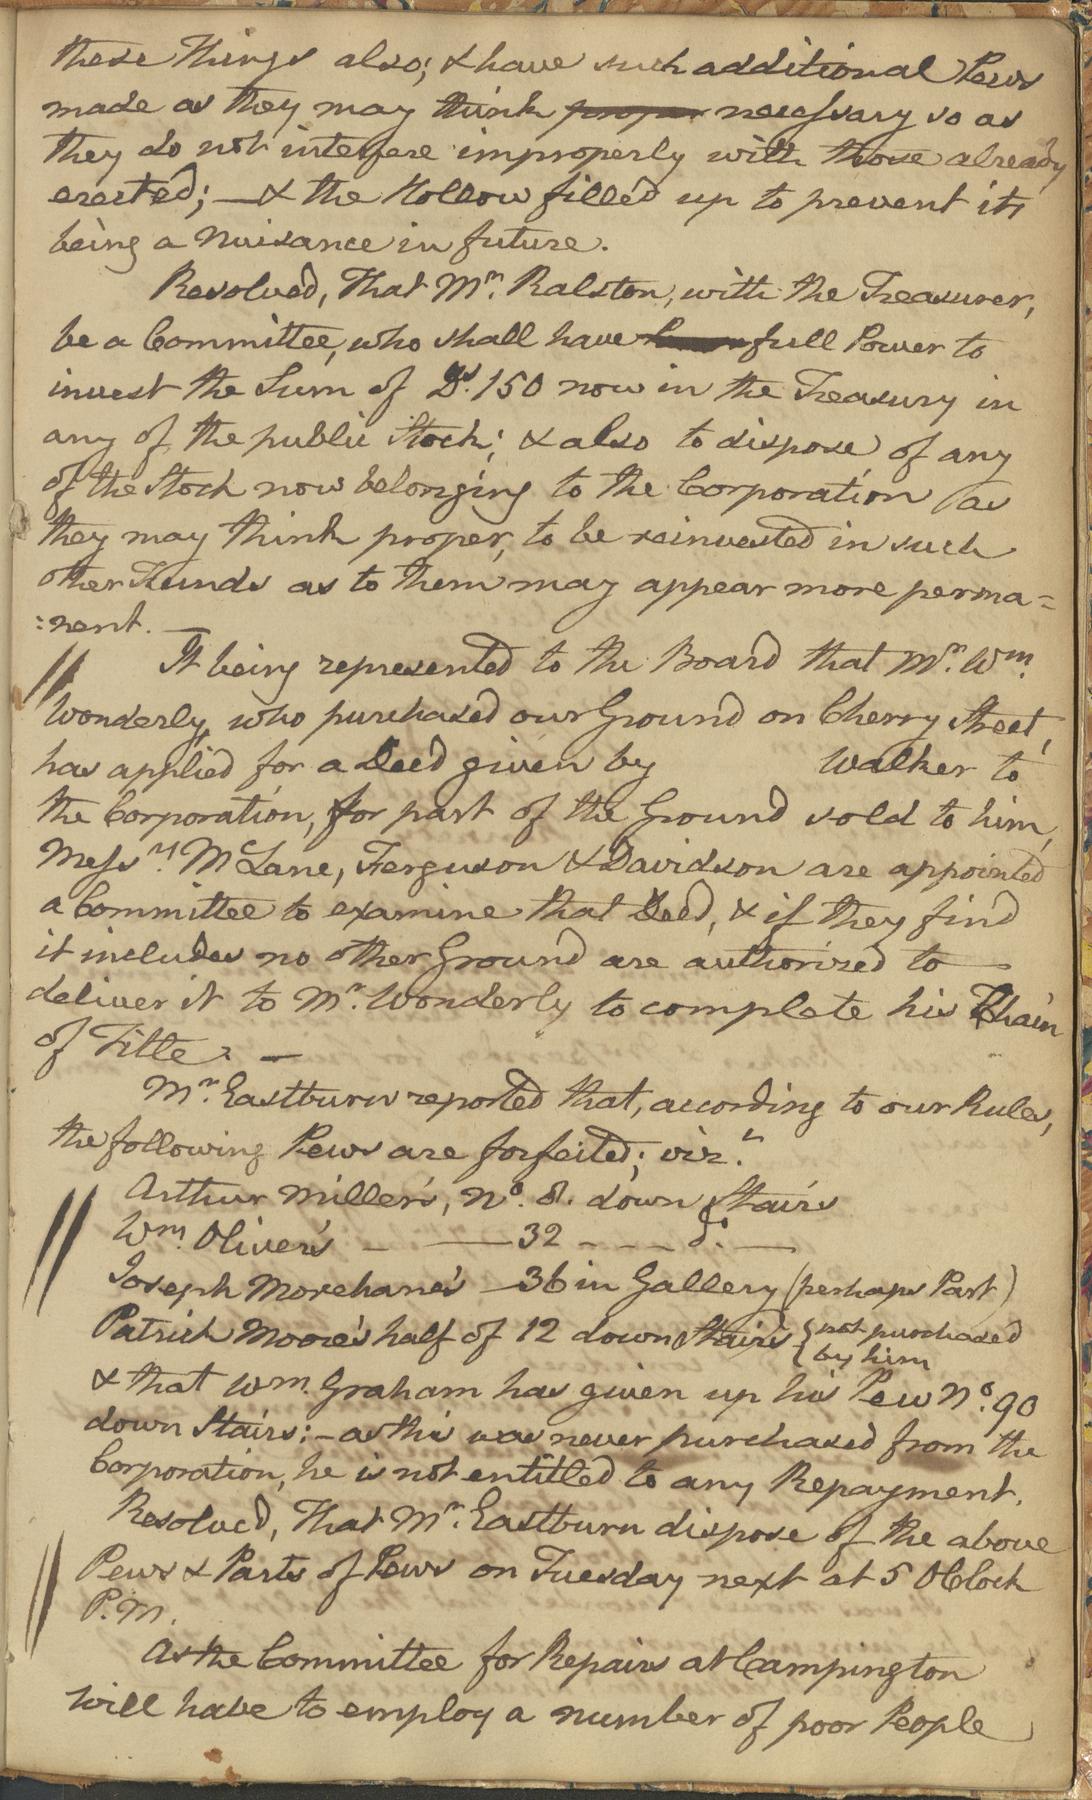 these Things also; & have such additional Pews
made as they may think proper necessary so as
they do not interfere improperly with those already
erected; — & the Hollow filled up to prevent its
being a Nuisance in future.
Resolved, That Mr. Ralston, with the Treasurer,
be a Committee, who shall have full Power to
invest the Sum of Ds. 150 now in the Treasury in
any of the public Stock; & also to dispose of any
of the Stock now belonging to the Corporation as
they may think proper, to be reinvested in such
other Funds as to them may appear more perma=
:nent. —
It being represented to the Board that Mr. Wm.
Wonderly, who purchased our Ground on Cherry Street,
has applied for a Deed given by Walker to
the Corporation, for part of the Ground sold to him,
Messrs. McLane, Ferguson & Davidson are appointed
a Committee to examine that Deed, & if they find
it includes no other Ground are authorized to —
deliver it to Mr. Wonderly to complete his Chain
of Title. —
Mr. Eastburn reported that, according to our Rules,
the following Pews are forfeited; viz.
Arthur Miller's, No. 8. down Stairs
Wm. Oliver's — — 32 - - - do. —
Joseph Morehane's — 36 in Gallery (perhaps Part)
Patrick Moore's half of 12 down Stairs { not purchased
by him
& that Wm. Graham has given up his Pew No. 90
down Stairs: — as this was never purchased from the
Corporation, he is not entitled to any Repayment.
Resolved, That Mr. Eastburn dispose of the above
Pews & Parts of Pews on Tuesday next at 5 OClock
P.M.
As the Committee for Repairs at Campington
will have to employ a number of poor People